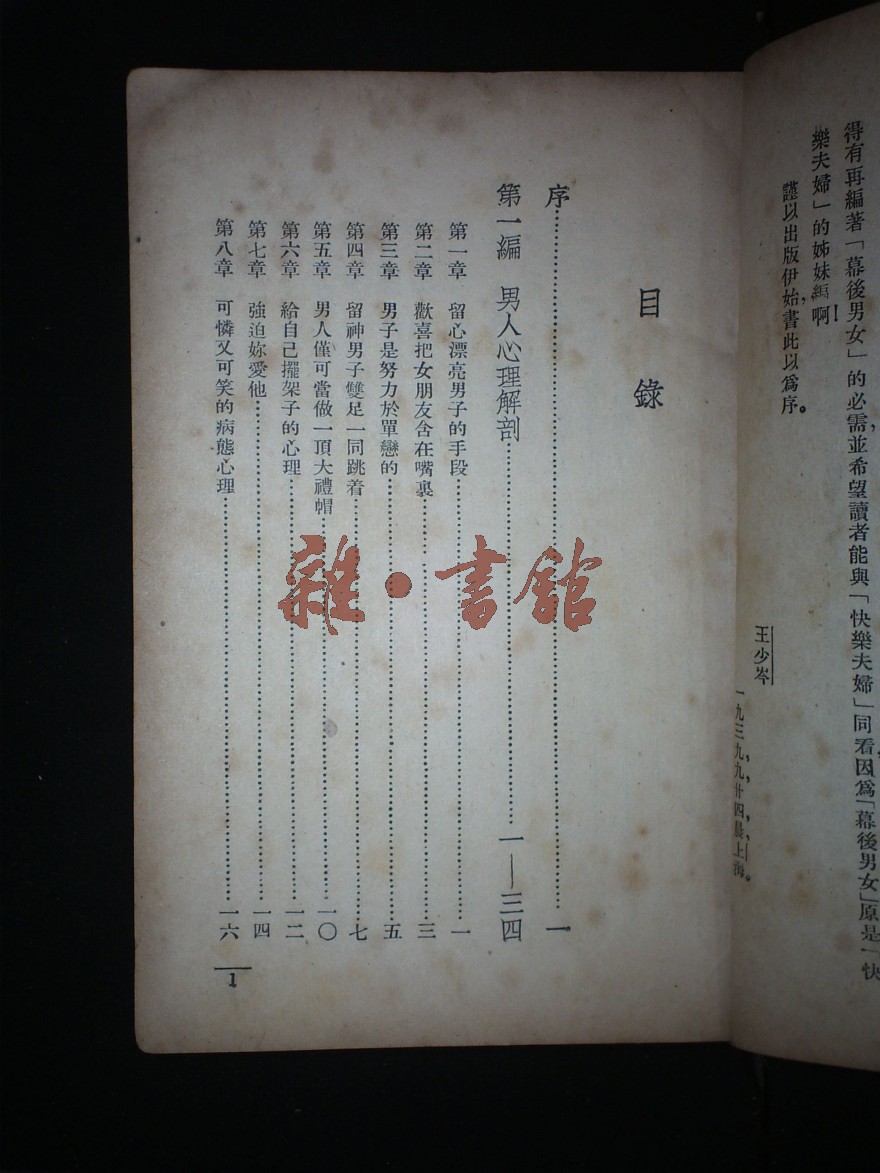 得有再編著「幕後男女」的必需,並希望讀者能與「快樂夫婦」同看,因爲「幕後男女」原是「快
樂夫婦」的姊妹編啊!
謹以出版伊始,書此以爲序。
王少岑
一九三九,九,廿四,晨,上海。
目錄
序……一
第一編 男人心理解剖……一——三四
第一章 留心漂亮男子的手段……一
第二章 歡喜把女朋友含在嘴裏……三
第三章 男子是努力於單戀的……五
第四章 留神男子雙足一同跳着……七
第五章 男人僅可當做一頂大禮帽……一〇
第六章 給自己擺架子的心理……一二
第七章 強迫妳愛他……一四
第八章 可憐又可笑的病態心理……一六
1
雜·書館